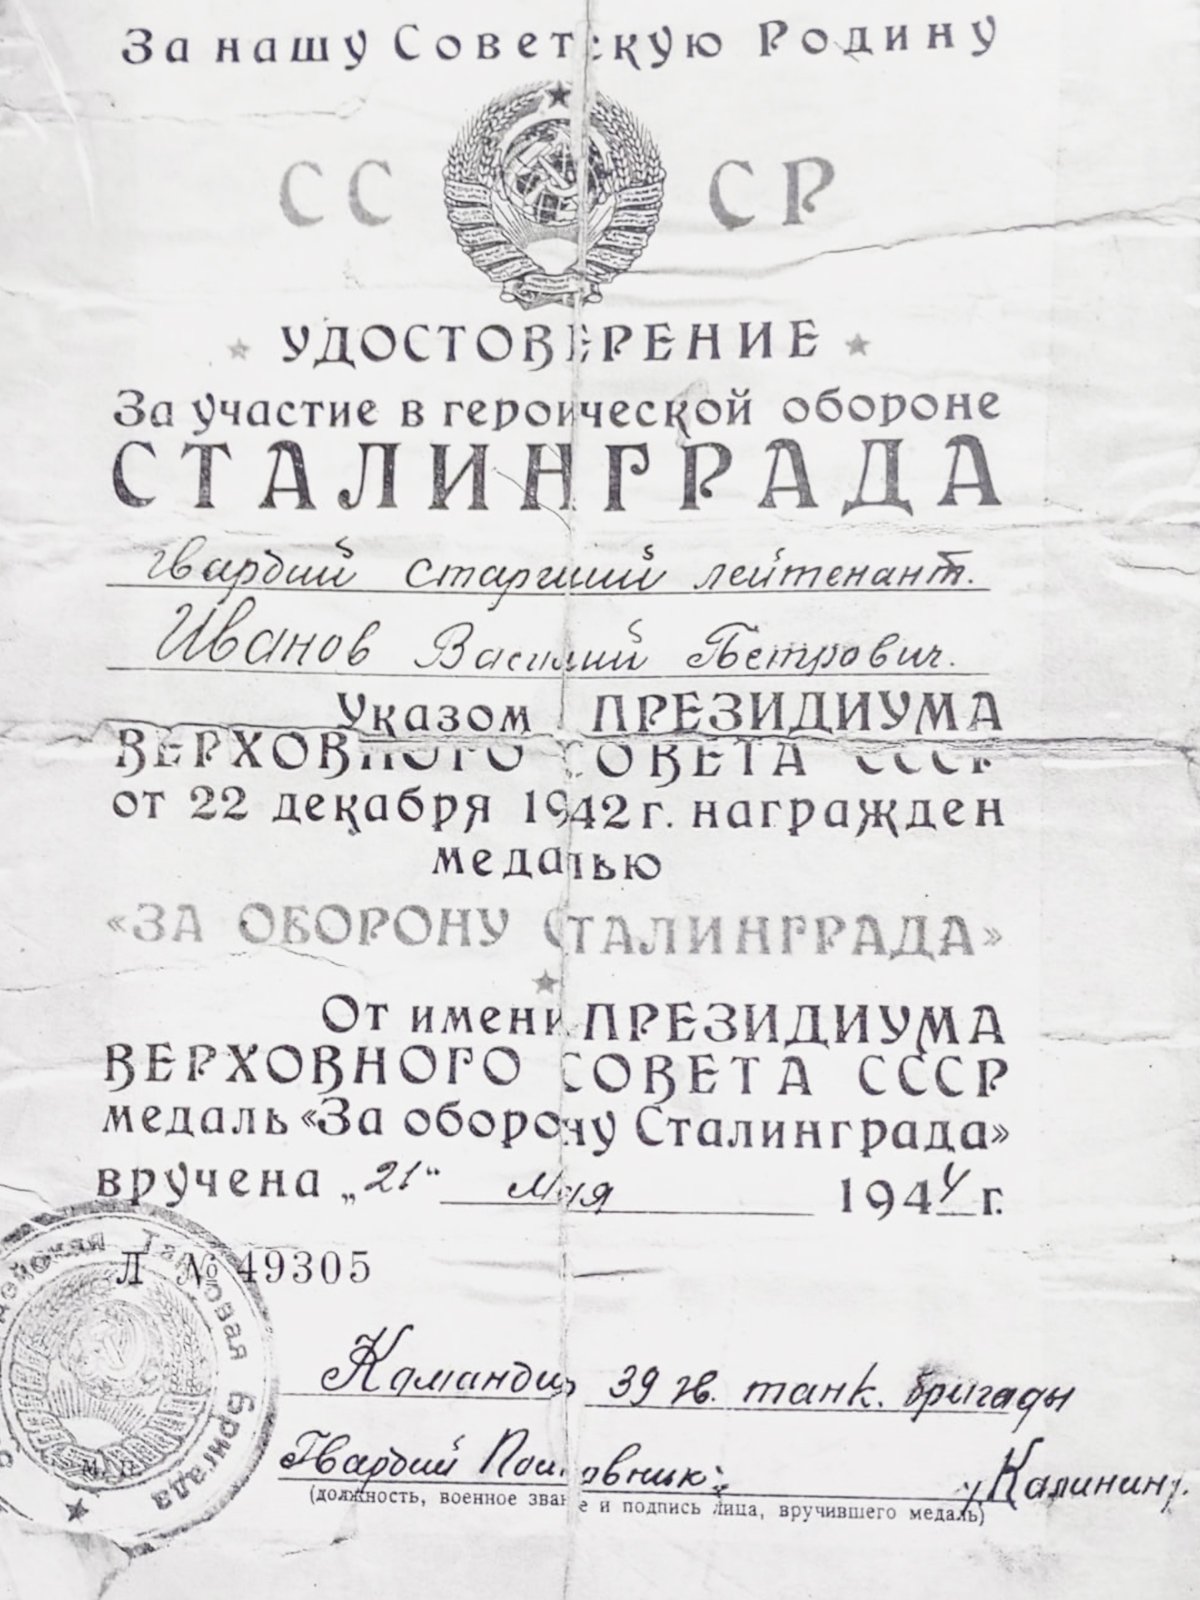 За нашу Советскую Родину
СС СР
УДОСТОВЕРЕНИЕ
За участие в героической обороне
СТАЛИНГРАДА
гвардий старший лейтенант.
Иванов Василий Петрович.
Указом ПРЕЗИДИУМА
ВЕРХОВНОГО СОВЕТА СССР
от 22 декабря 1942 г. награжден
медалью
«ЗА ОБОРОНУ СТАЛИНГРАДА»
От имени ПРЕЗИДИУМА
ВЕРХОВНОГО СОВЕТА СССР
медаль «За оборону Сталинграда»
вручена „21“ мая 1944 г.
Л № 49305
Танковая Бригада
М. П.
Командир 39 гв. танк. бригады
Гвардий Полковник: Калинин
(должность, военное звание и подпись лица, вручившего медаль)